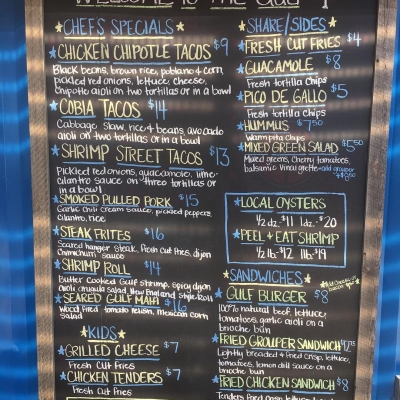 WELCOME TO THE
CHEFS SPECIALS
CHICKEN CHIPOTLE TACOS $9
Black beans, brown rice, poblano & corn,
pickled red onions, lettuce, cheese,
Chipotle aioli on two tortillas or in a bowl
COBIA TACOS $14
Cabbage slaw, rice & beans, avocado
aioli on two tortillas or in a bowl
SHRIMP STREET TACOS $13
Pickled red onions, guacamole, lime-
cilantro sauce on three tortillas or
in a bowl
SMOKED PULLED PORK $15
Garlic chili cream sauce, pickled peppers,
cilantro, rice
STEAK FRITES $16
Seared hanger steak, fresh cut fries, dijon
Chimichurri sauce
SHRIMP ROLL $14
Butter Cooked Gulf Shrimp, spicy dijon
aioli, arugula salad, New England style roll
SEARED GULF MAHI $16
Wood fired tomato relish, mexican corn
salad
KIDS
GRILLED CHEESE $7
Fresh Cut Fries
CHICKEN TENDERS $7
Fresh Cut Fries
SHARE/SIDES
FRESH CUT FRIES $4
GUACAMOLE $8
Fresh tortilla Chips
PICO DE GALLO $5
Fresh tortilla Chips
HUMMUS $7.50
Warm pita Chips
MIXED GREEN SALAD $5.50
Mixed greens, Cherry tomatoes,
balsamic vinaigrette - add grouper
LOCAL OYSTERS
1/2 dz. $11 1dz. $20
PEEL + EAT SHRIMP
1/2 lb. $12 1 lb. $19
SANDWICHES
GULF BURGER $8
100% natural beef, lettuce,
tomatoes, garlic aioli on a
brioche bun
FRIED GROUPER SANDWICH
Lightly breaded & fried crisp, lettuce,
tomatoes, lemon dill sauce on a
brioche bun
FRIED CHICKEN SANDWICH $8
Tenders fried crisp, lettuce